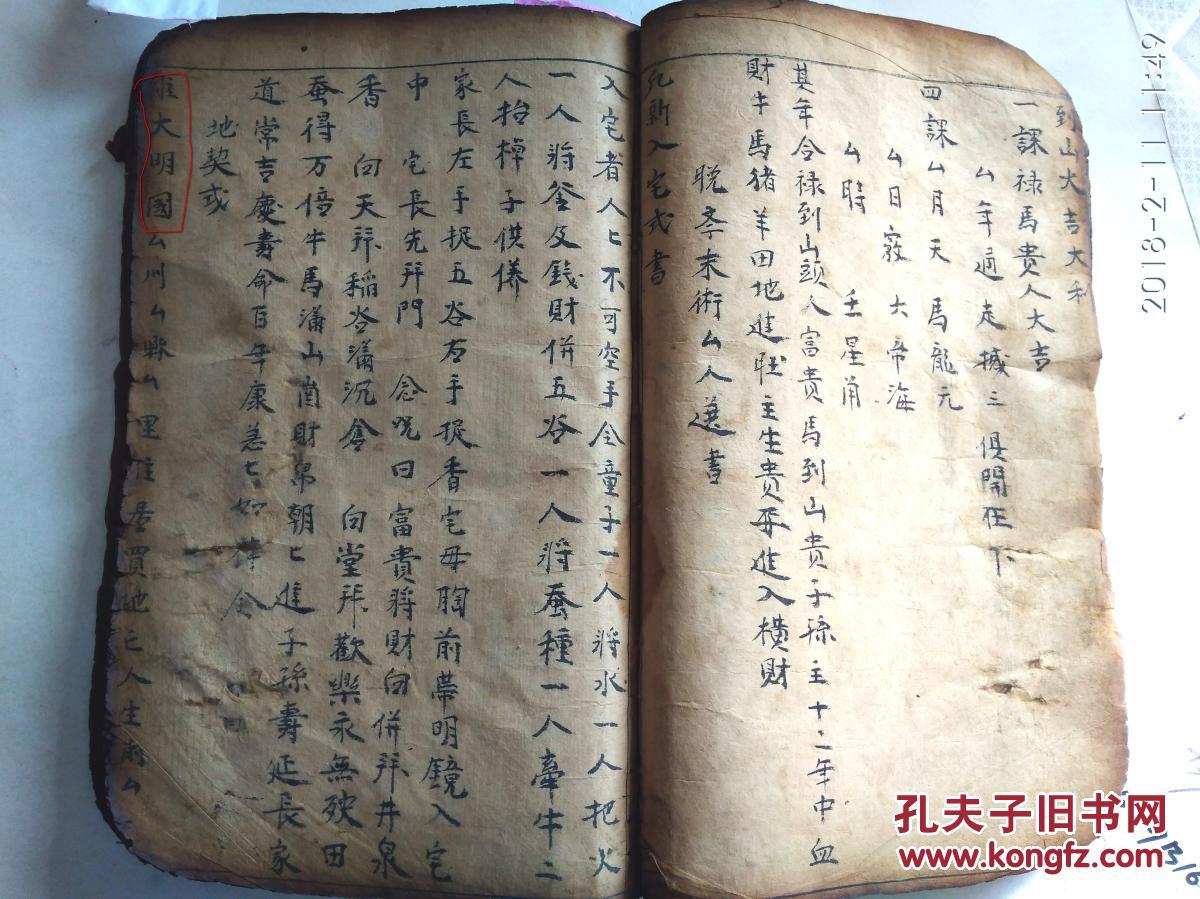 到山大吉大利
一課禄馬貴人大吉
厶年通走撼三俱開在下
四課厶月天馬龍元
厶日竅大帝海
厶時壬星角
其年合禄到山頭人富貴馬到山貴子孫主十二年中血
財牛馬猪羊田地進旺主生貴再進入横財
晚斈末術厶人選書
凡新入宅式書
入宅者人匕不可空手令童子一人將水一人把火
一人將釜及銭財併五谷一人將蚕種一人牽牛二
人抬棹子供俻
家長左手捉五谷右手捉香宅母胸前帶明鏡入宅
中宅長先拜門念咒曰富貴將財向併拜井泉
香向天拜稲谷满沉倉向堂拜歡樂永無殃田
蚕得万倍牛馬滿山崗財帛朝匕進子孫壽延長家
道常吉慶壽命百年康急匕如律令
地契或
維大明國厶州厶縣厶里住屋買地亡人生前厶
孔夫子旧书网
www.kongfz.com
2018-2-11 11:49